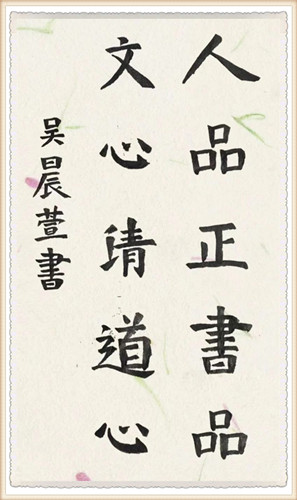 人品正書品
文心清道心
吴晨萱書